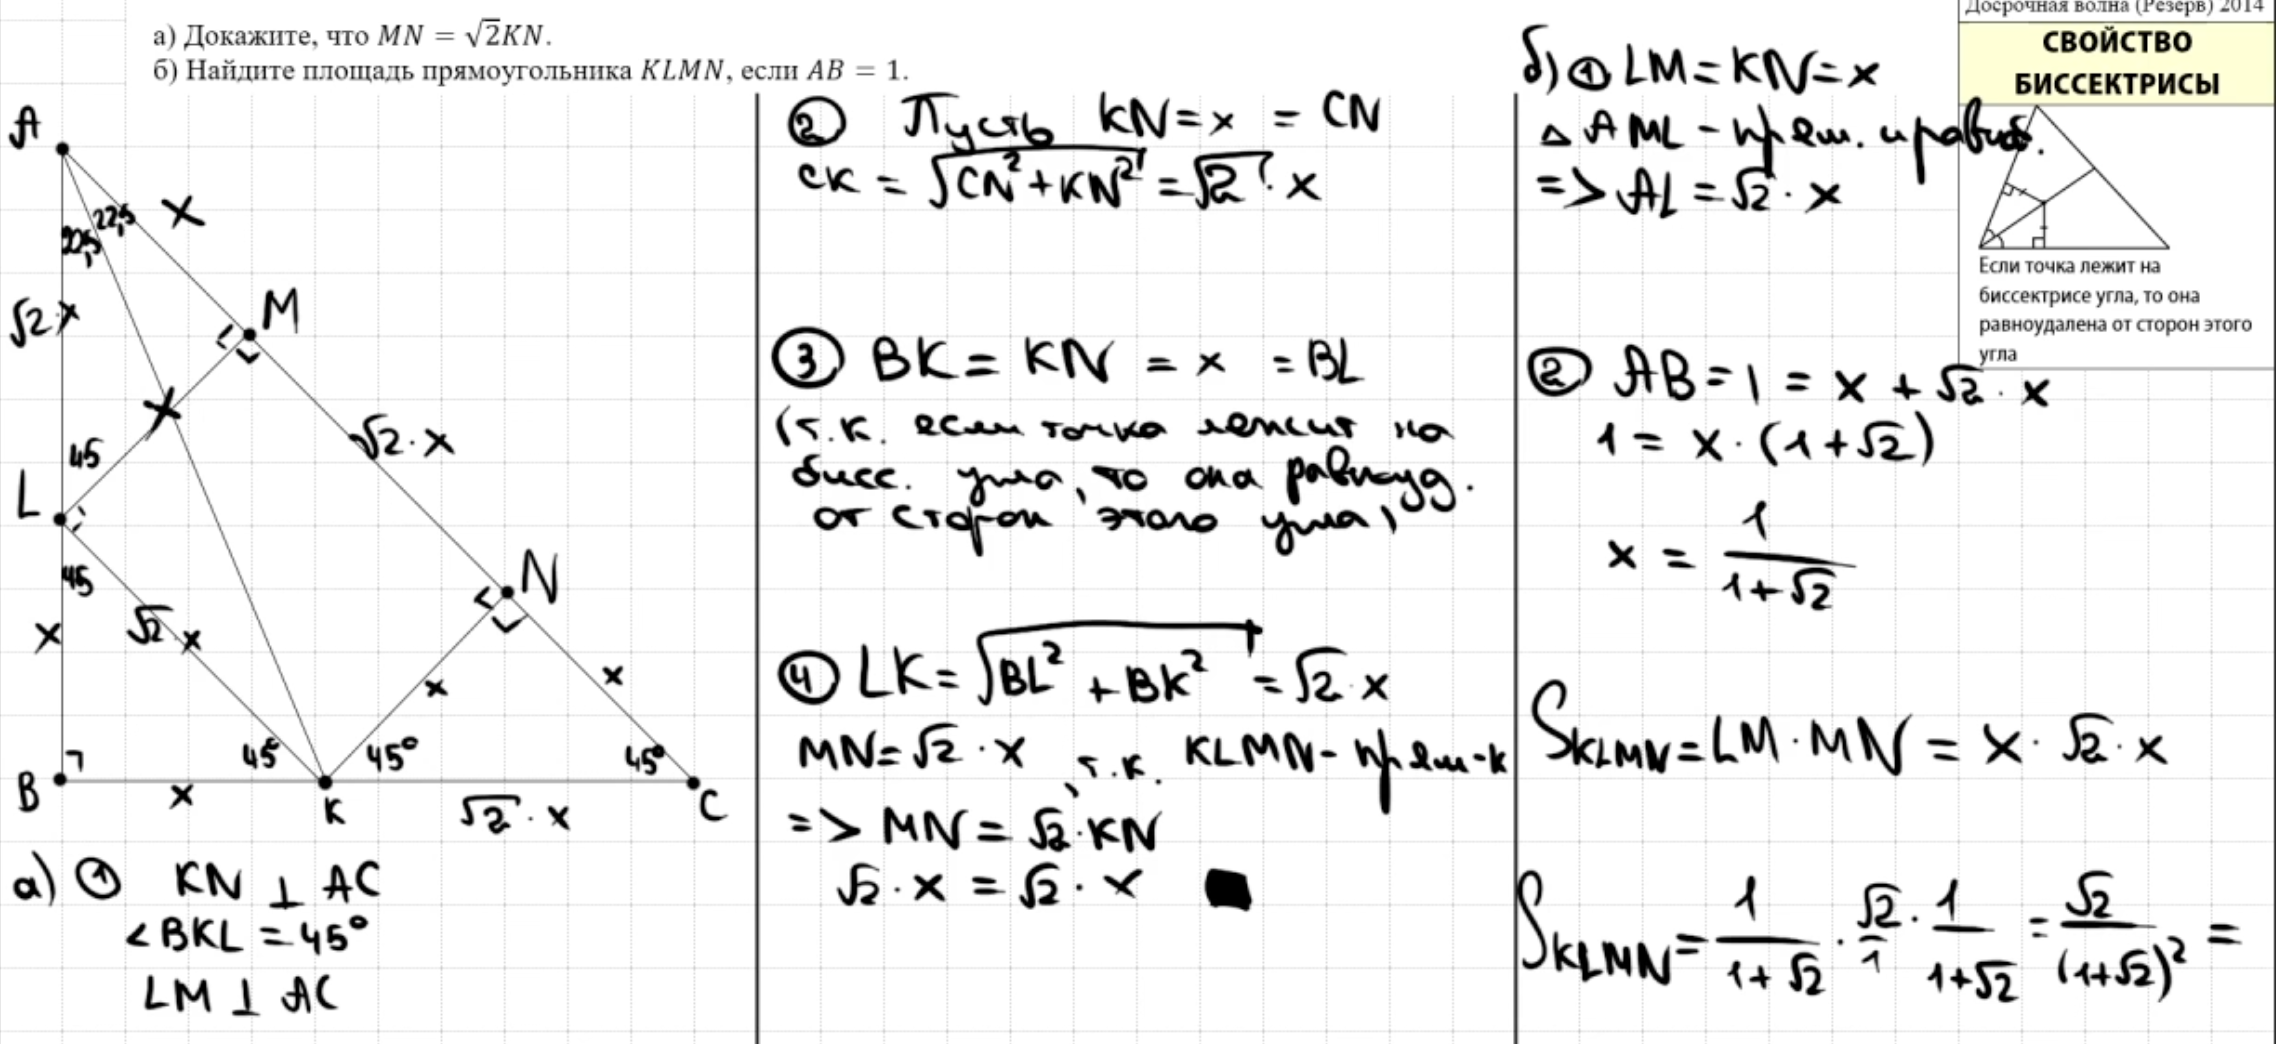 а) Докажите, что MN = √2KN.
б) Найдите площадь прямоугольника KLMN, если AB = 1.
Досрочная волна (Резерв) 2014
СВОЙСТВО
БИССЕКТРИСЫ
Если точка лежит на
биссектрисе угла, то она
равноудалена от сторон этого
угла
A
22,5
22,5
x
√2·x
M
x
45
√2·x
L
45
x
√2·x
N
x
x
45°
45°
45°
B
x
K
√2·x
C
а) ① KN ⊥ AC
∠BKL = 45°
LM ⊥ AC
② Пусть KN = x = CN
CK = √(CN² + KN²) = √2 · x
③ BK = KN = x = BL
(т.к. если точка лежит на
бисс. угла, то она равноуд.
от сторон этого угла)
④ LK = √(BL² + BK²) = √2·x
MN = √2 · x, т.к. KLMN - прям-к
=> MN = √2·KN
√2 · x = √2 · x
б) ① LM = KN = x
△AML - прям. и равноб.
=> AL = √2 · x
② AB = 1 = x + √2 · x
1 = x · (1 + √2)
x = 1/(1+√2)
S KLMN = LM · MN = x · √2 · x
S KLMN = 1/(1+√2) · √2/1 · 1/(1+√2) = √2/(1+√2)² =